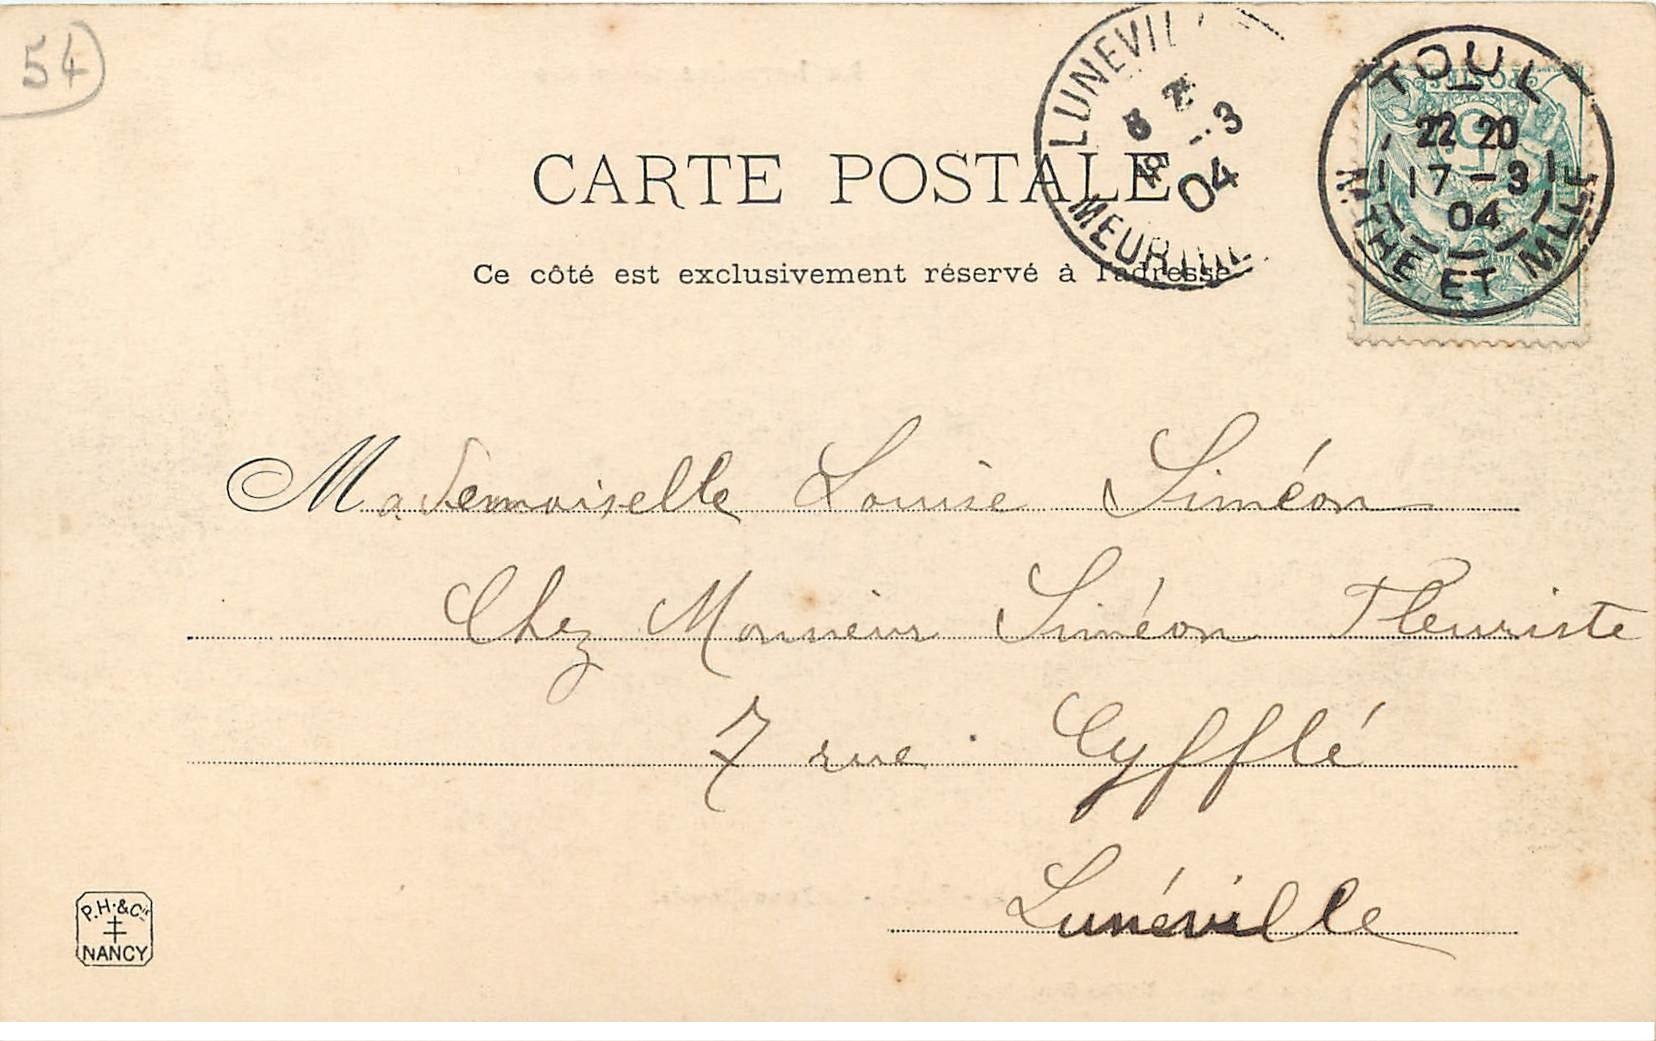 54
LUNEVIL
8
-3
04
MEURTHE
TOUL
22 20
17 -3
04
MTHE ET MLLE
POSTES
CARTE POSTALE
Ce côté est exclusivement réservé à l'adresse
Mademoiselle Louise Siméon
Chez Monsieur Siméon Fleuriste
7 rue Cyfflé
Lunéville
P.H.&Cie
NANCY